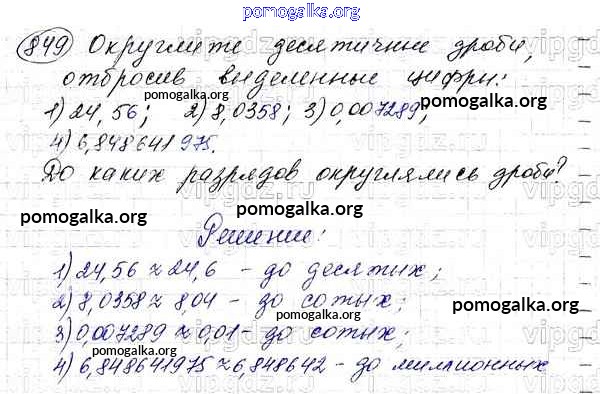 pomogalka.org
849 Округлите десятичные дроби,
отбросив выделенные цифры:
pomogalka.org pomogalka.org
1) 24,56; 2) 8,0358; 3) 0,007289;
4) 6,848641975.
pomogalka.org
До каких разрядов округлялись дроби?
pomogalka.org pomogalka.org
Решение:
pomogalka.org
1) 24,56 ≈ 24,6 - до десятых;
2) 8,0358 ≈ 8,04 - до сотых;
pomogalka.org
3) 0,007289 ≈ 0,01 - до сотых;
pomogalka.org
4) 6,848641975 ≈ 6,848642 - до миллионных
pomogalka.org